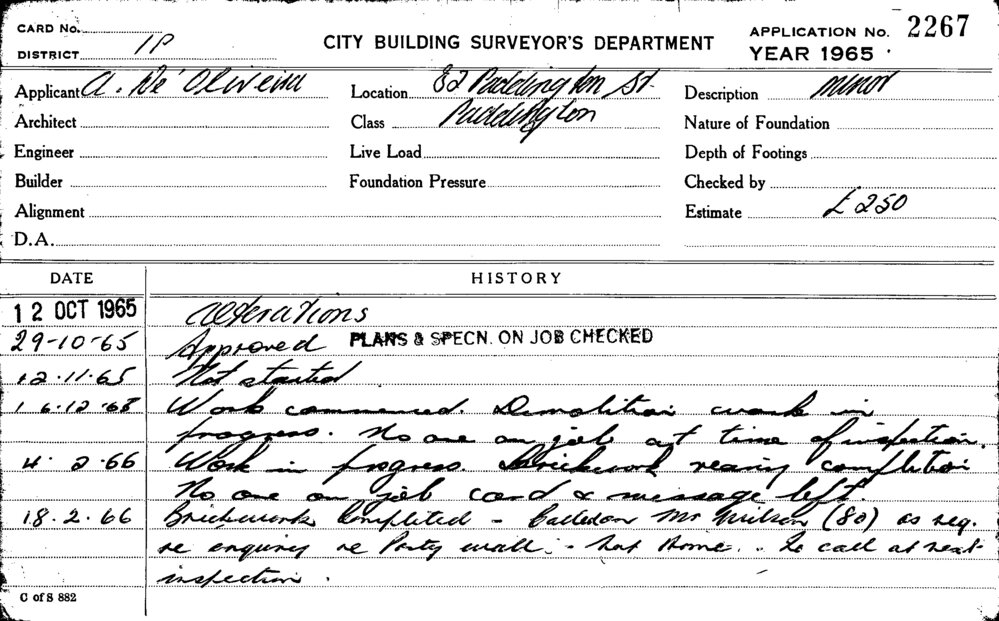 CARD No.
DISTRICT 1P
CITY BUILDING SURVEYOR'S DEPARTMENT
APPLICATION No. 2267
YEAR 1965
Applicant A. De' Oliveira
Location 82 Paddington St.
Description Minor
Architect
Class Paddington
Nature of Foundation
Engineer
Live Load
Depth of Footings
Builder
Foundation Pressure
Checked by
Alignment
Estimate £250
D.A.
DATE HISTORY
12 OCT 1965 Alterations
29-10-65 Approved PLANS & SPECN. ON JOB CHECKED
12.11.65 Not started
16.12.65 Work commenced. Demolition work in
progress. No one on job at time of inspection.
4. 2.66 Work in progress. Brickwork nearing completion
No one on job card & message left.
18.2.66 Brickwork Completed - Called on Mr Wilson (80) as req.
re enquiry re Party wall. - Not Home. - To call at next
inspection.
C of S 882